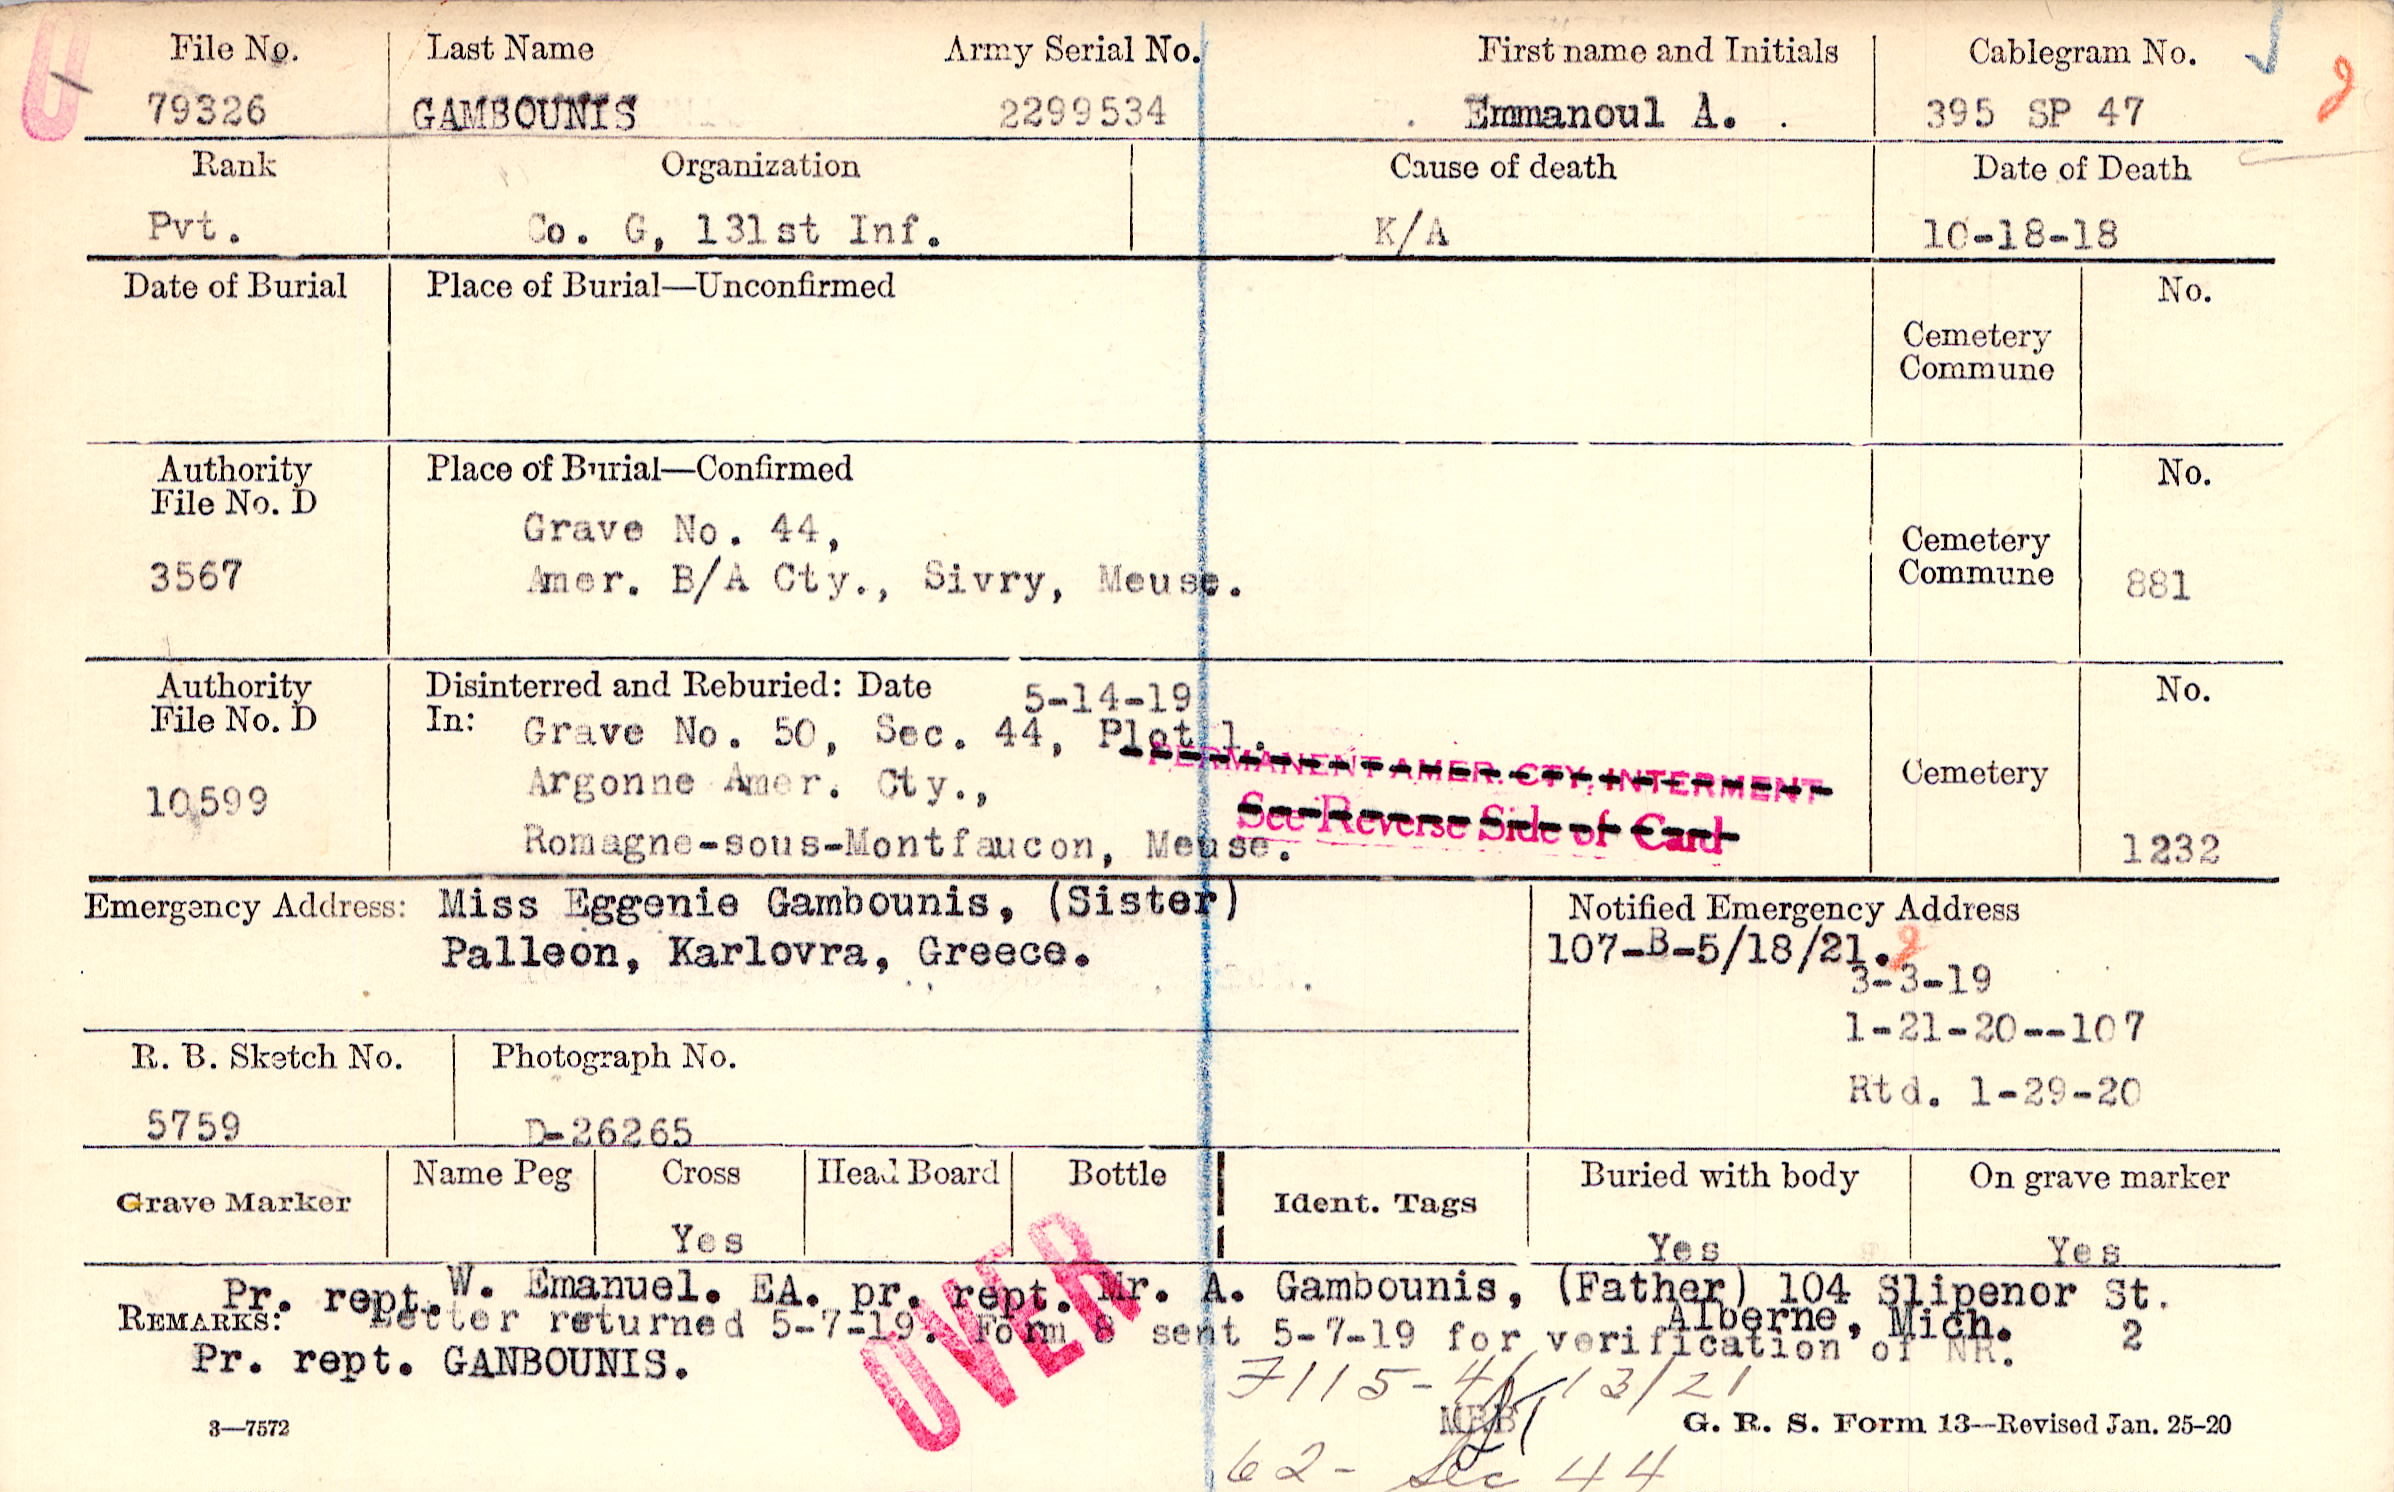 U
File No. Last Name Army Serial No. First name and Initials Cablegram No.
79326 GAMBOUNIS 2299534 Emmanoul A. 395 SP 47 2
Rank Organization Cause of death Date of Death
Pvt. Co. G, 131st Inf. K/A 10-18-18
Date of Burial Place of Burial—Unconfirmed No.
Cemetery
Commune
Authority Place of Burial—Confirmed No.
File No. D
Grave No. 44,
3567 Amer. B/A Cty., Sivry, Meuse. Cemetery
Commune 881
Authority Disinterred and Reburied: Date 5-14-19 No.
File No. D In: Grave No. 50, Sec. 44, Plot 1.
PERMANENT AMER. CTY. INTERMENT
10599 Argonne Amer. Cty., Cemetery
See Reverse Side of Card
Romagne-sous-Montfaucon, Meuse. 1232
Emergency Address: Miss Eggenie Gambounis, (Sister) Notified Emergency Address
Palleon, Karlovra, Greece. 107-B-5/18/21. 2
3-3-19
1-21-20--107
R. B. Sketch No. Photograph No.
Rtd. 1-29-20
5759 D-26265
Grave Marker Name Peg Cross Head Board Bottle Ident. Tags Buried with body On grave marker
Yes Yes Yes
Pr. rept. W. Emanuel. EA. pr. rept. Mr. A. Gambounis, (Father) 104 Slipenor St.
Alberne, Mich.
REMARKS: Letter returned 5-7-19. Form 8 sent 5-7-19 for verification of NR. 2
Pr. rept. GANBOUNIS.
OVER
7115-4/13/21
3—7572 G. R. S. Form 13—Revised Jan. 25-20
62- Sec 44